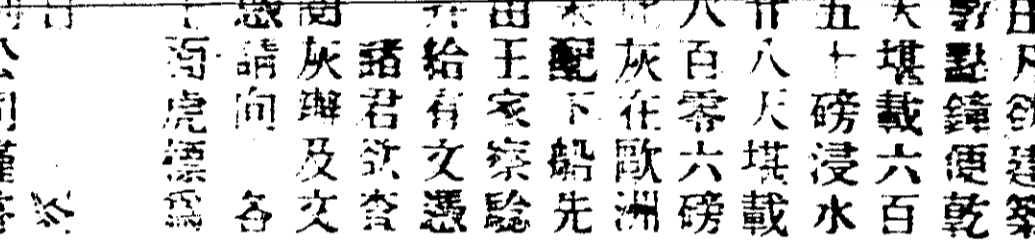 凡欲建築
點鐘便乾
天堪載六百
五十磅浸水
廿八天堪載
八百零六磅
灰在歐洲
配下船先
由王家察驗
并給有文憑
諸君欲查
灰辦及文
憑請向 各
虎標為
公司謹